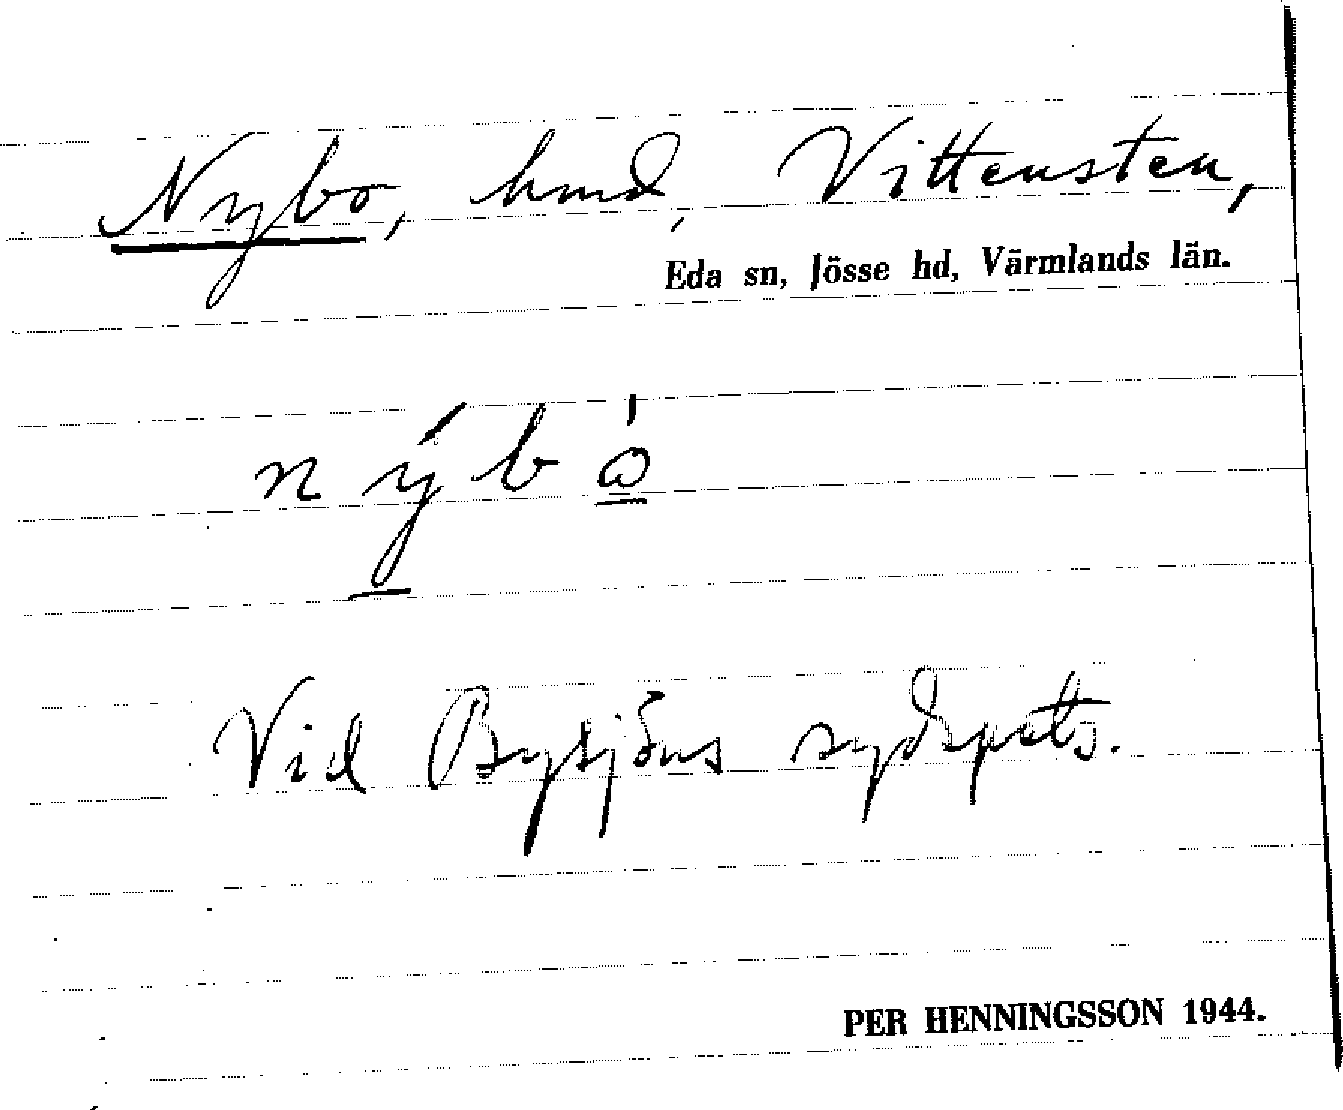 Nybo, hmd, Vittensten,
Eda sn, Jösse hd, Värmlands län.
nýbó
Vid Bysjöns sydspets.
PER HENNINGSSON 1944.